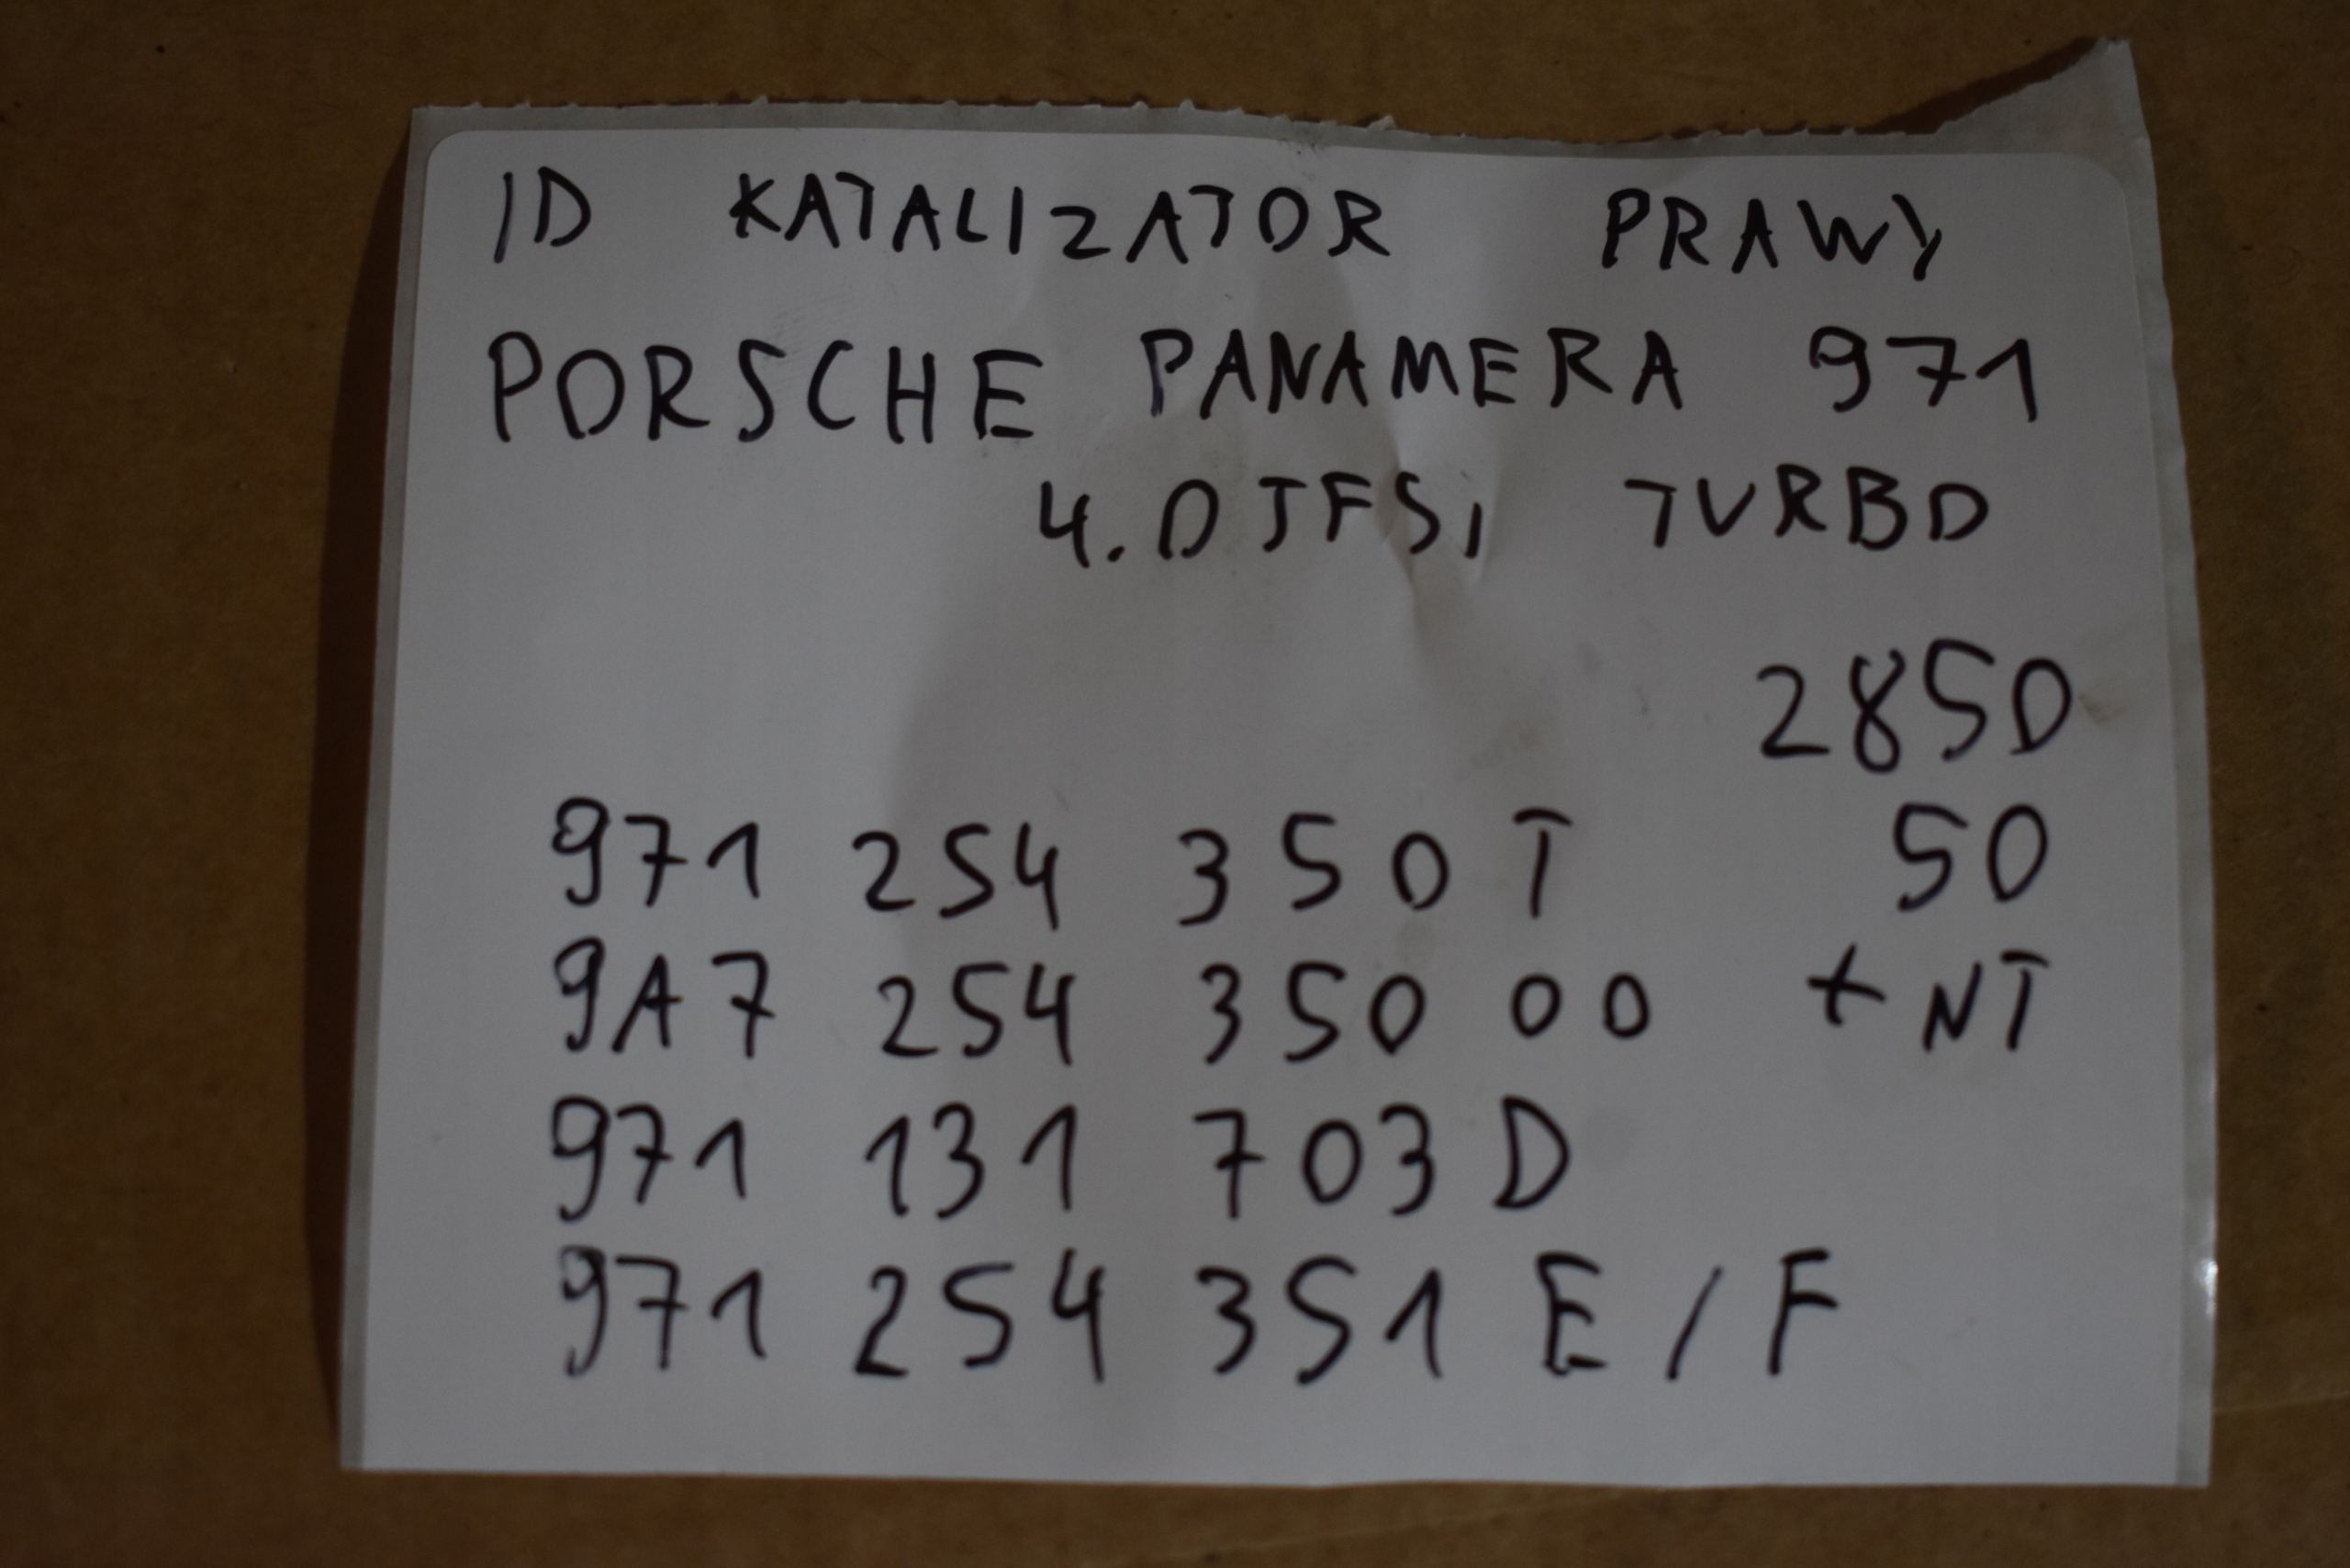 ID KATALIZATOR PRAWY
PORSCHE PANAMERA 971
4.0 TFSI TURBO
2850
971 254 350 T 50
9A7 254 350 00 + NT
971 131 703 D
971 254 351 E / F